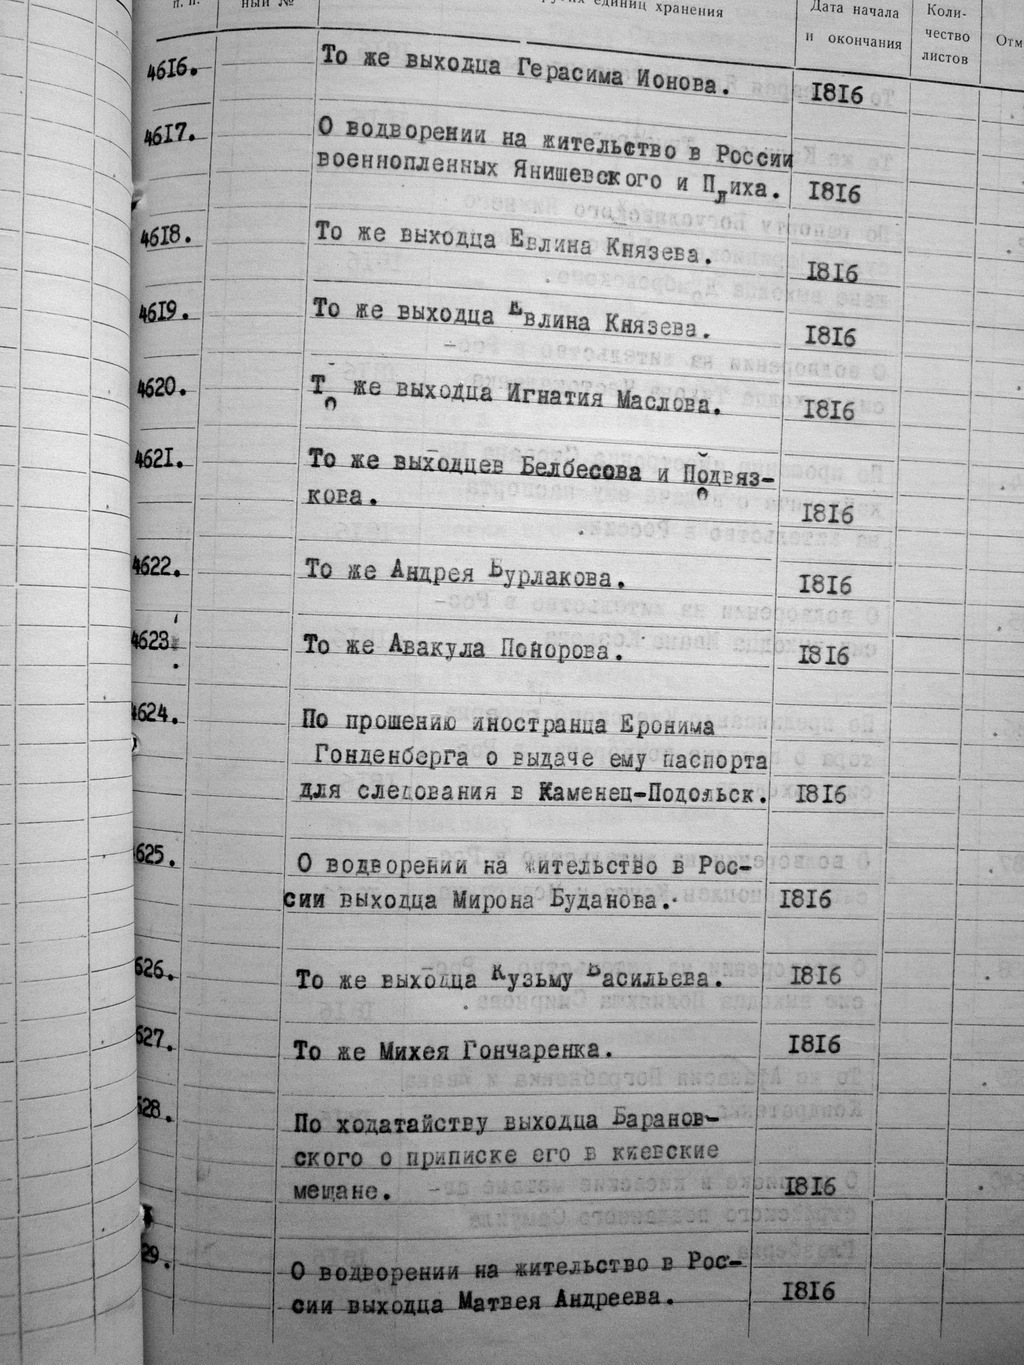 п. п.
ный №
единиц хранения
Дата начала
и окончания
Коли-
чество
листов
Отм
4616.
То же выходца Герасима Ионова.
1816
4617.
О водворении на жительство в России
военнопленных Янишевского и Плиха.
1816
4618.
То же выходца Евлина Князева.
1816
4619.
То же выходца Евлина Князева.
1816
4620.
То же выходца Игнатия Маслова.
1816
4621.
То же выходцев Белбесова и Подвяз-
кова.
1816
4622.
То же Андрея Бурлакова.
1816
4623.
То же Авакула
1816
4624.
По прошению иностранца Еронима
Гонденберга о выдаче ему паспорта
для следования в Каменец-Подольск.
1816
625.
О водворении на жительство в Рос-
сии выходца Мирона Буданова.
1816
626.
То же выходца Кузьму Васильева.
1816
627.
То же Михея Гончаренка.
1816
628.
По ходатайству выходца Баранов-
ского о приписке его в киевские
мещане.
1816
29.
О водворении на жительство в Рос-
сии выходца Матвея Андреева.
1816